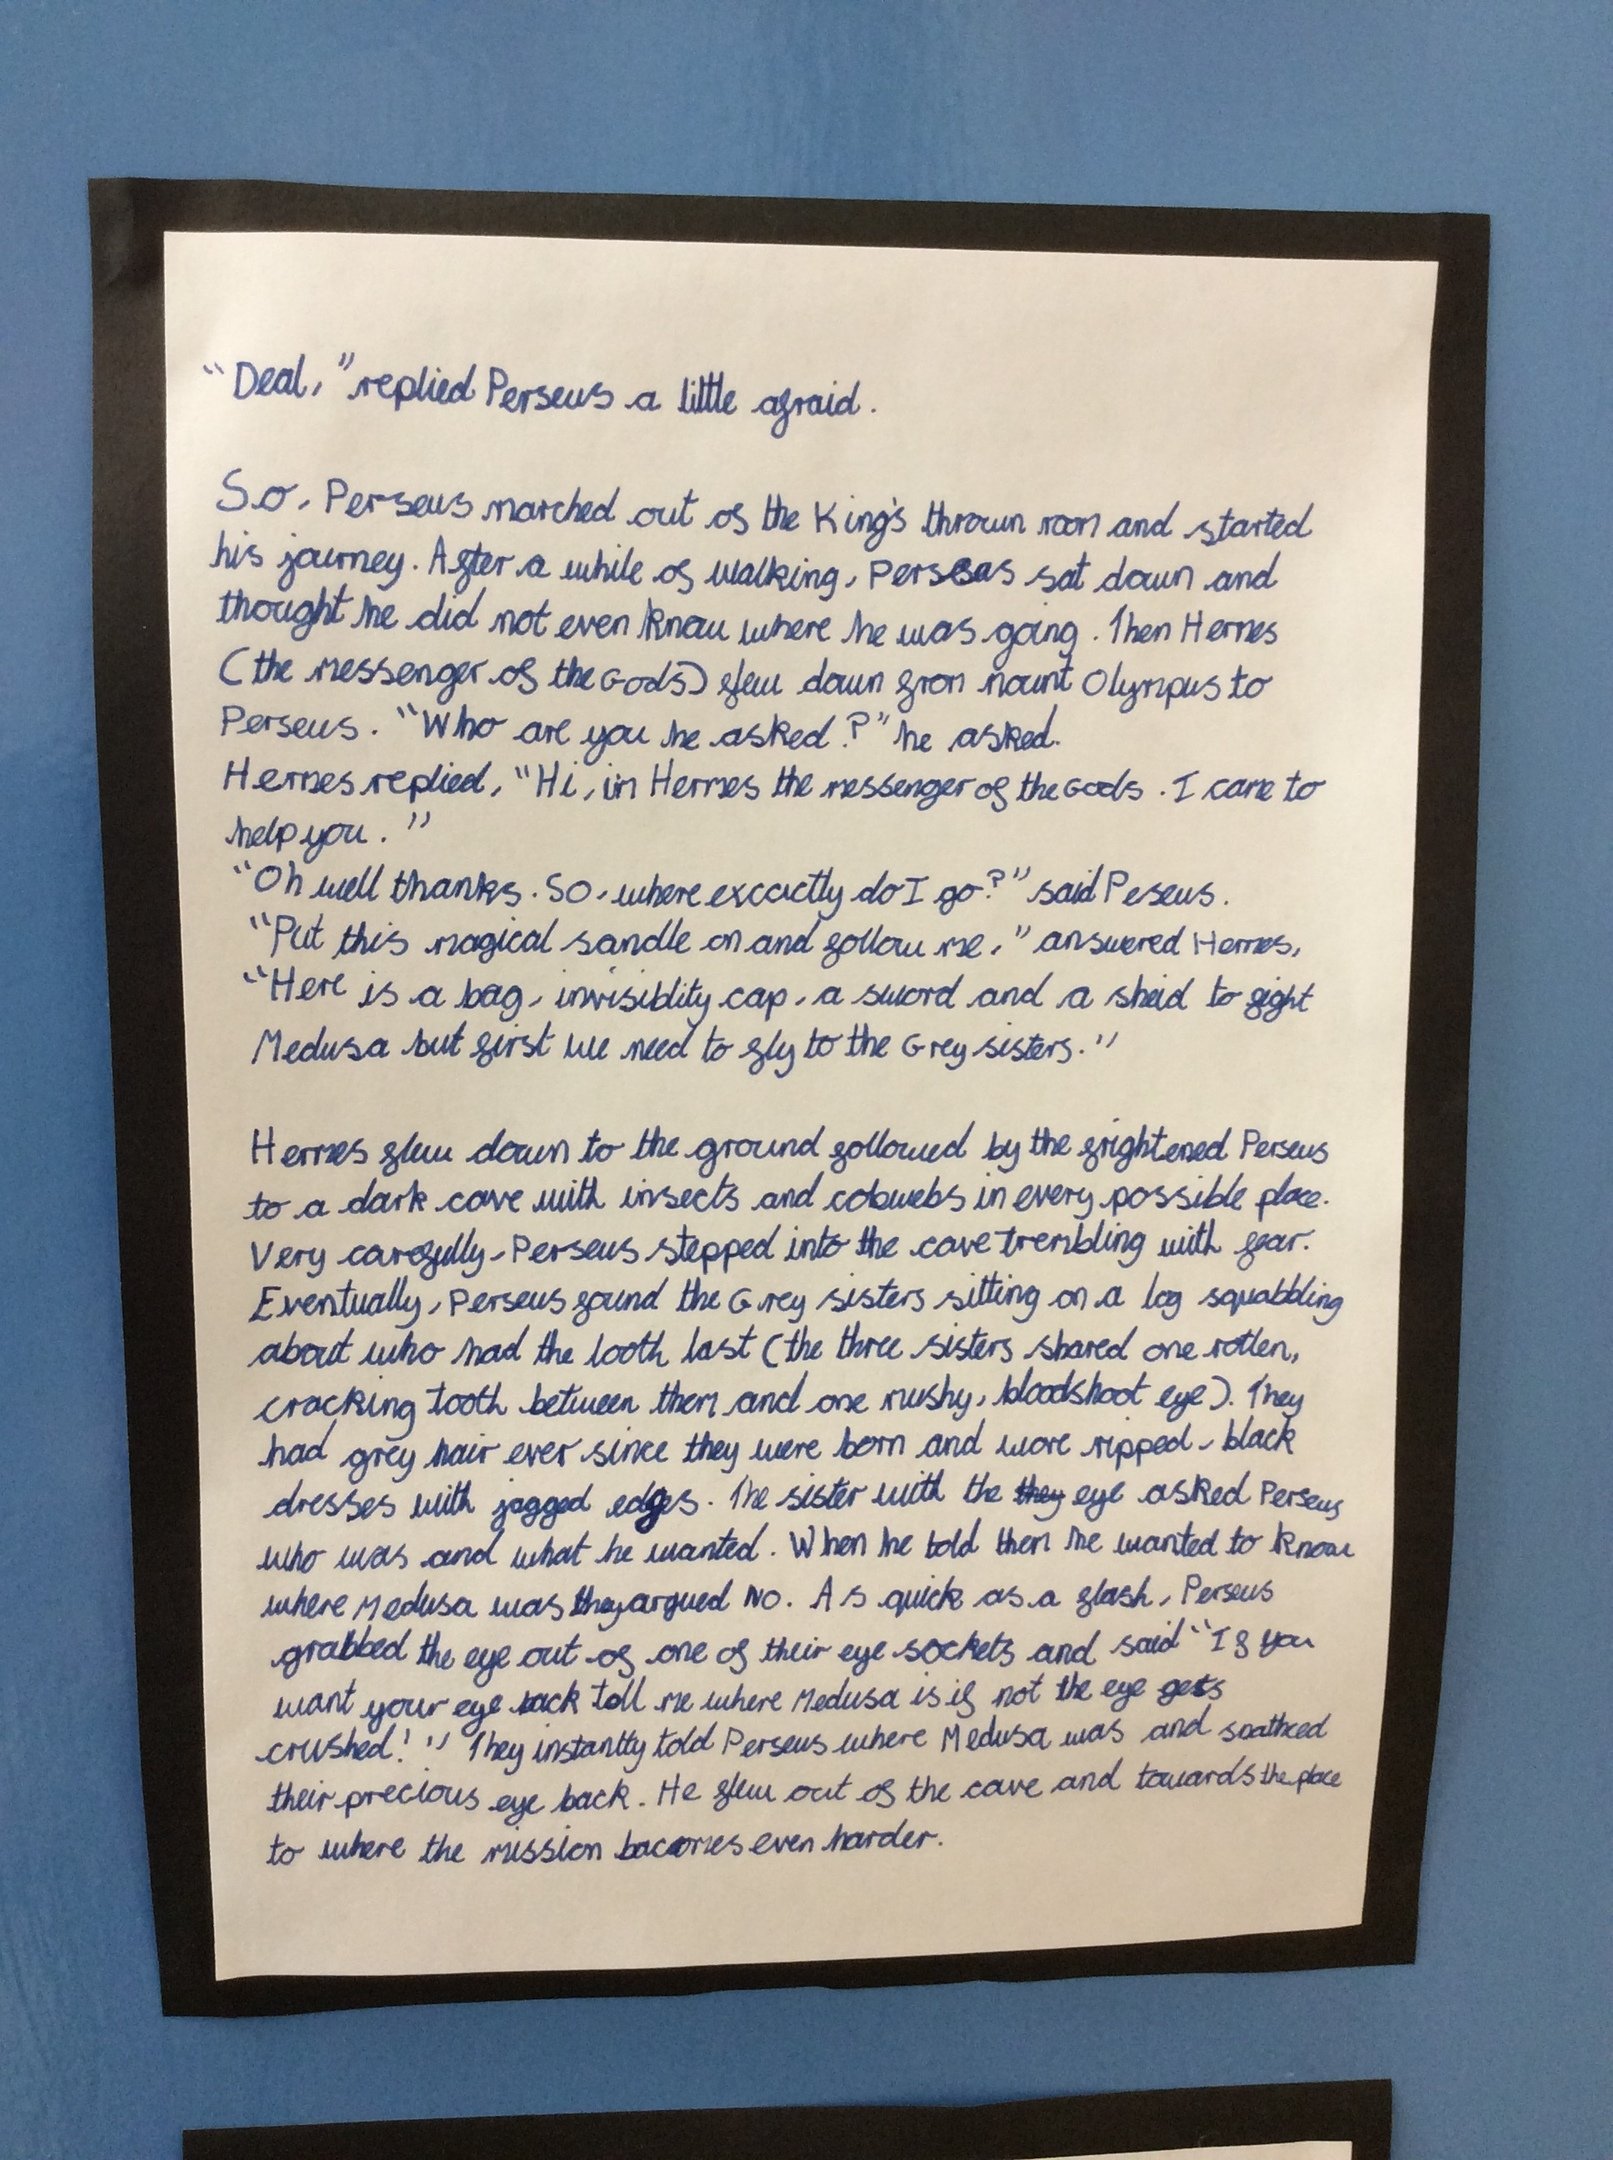 "Deal," replied Perseus a little afraid.
So, Perseus marched out of the King's thrown room and started
his journey. After a while of walking, Perseus sat down and
thought he did not even know where he was going. Then Hermes
(the messenger of the Gods) flew down from mount Olympus to
Perseus. "Who are you he asked?" he asked.
Hermes replied, "Hi, im Hermes the messenger of the Gods. I came to
help you."
"Oh well thanks. So, where excactly do I go?" said Peseus.
"Put this magical sandle on and follow me," answered Hermes,
"Here is a bag, invisiblity cap, a sword and a sheid to fight
Medusa but first we need to fly to the Grey sisters."
Hermes flew down to the ground followed by the frightened Perseus
to a dark cave with insects and cobwebs in every possible place.
Very carefully, Perseus stepped into the cave trembling with fear.
Eventually, Perseus found the Grey sisters sitting on a log squabbling
about who had the tooth last (the three sisters shared one rotten,
cracking tooth between them and one mushy, bloodshoot eye). They
had grey hair ever since they were born and wore ripped, black
dresses with jagged edges. The sister with the they eye asked Perseus
who was and what he wanted. When he told them he wanted to know
where Medusa was they argued no. As quick as a flash, Perseus
grabbed the eye out of one of their eye sockets and said "If you
want your eye back tell me where Medusa is if not the eye gets
crushed!" They instantly told Perseus where Medusa was and snathced
their precious eye back. He flew out of the cave and towards the place
to where the mission bacomes even harder.